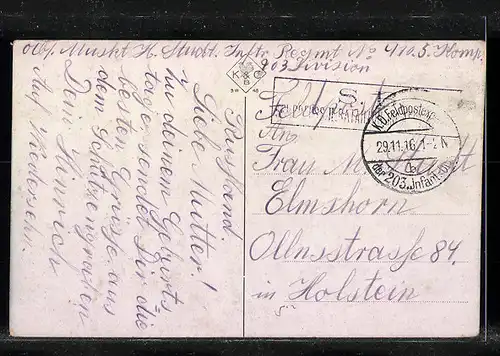 Abs. Muskt H. Studt. Inftr. Regmt No 410. 5. Komp.
203 Division
Russland.
Liebe Mutter!
Zu deinem Geburts
tage sendet Dir die
besten Grüsse aus
dem Schützengraben
Dein Heinrich
Auf Wiedersehn.
K & B
S.
Feldpost
An
Frau M. Studt
Elmshorn
Ollnsstrasse 84.
in Holstein
K.D. Feldpostexp.
29.11.16. 1-2 N
der 203. Infant.-Div.